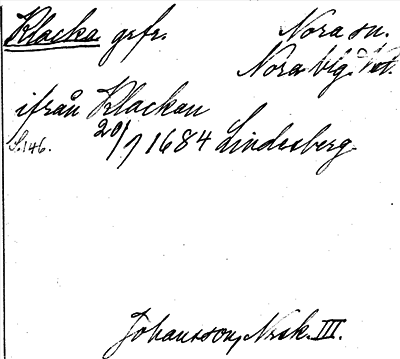 Klacka grfr. Nora sn.
Nora blg.
ifrån Klackan
S.146. 20/7 1684 Lindesberg.
Johansson, Nrsk. III.